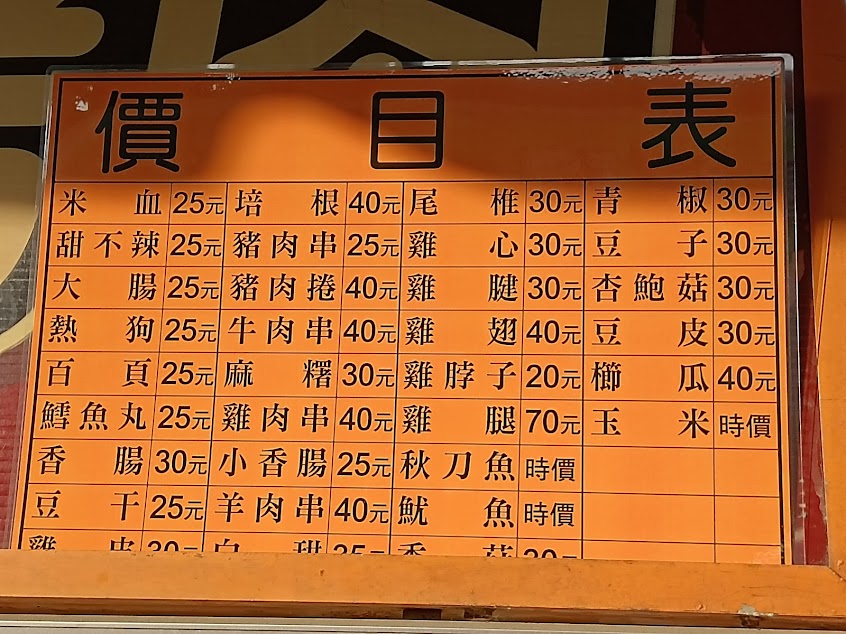 價目表
米血 25元 培根 40元 尾椎 30元 青椒 30元
甜不辣 25元 豬肉串 25元 雞心 30元 豆子 30元
大腸 25元 豬肉捲 40元 雞腱 30元 杏鮑菇 30元
熱狗 25元 牛肉串 40元 雞翅 40元 豆皮 30元
百頁 25元 麻糬 30元 雞脖子 20元 櫛瓜 40元
鱈魚丸 25元 雞肉串 40元 雞腿 70元 玉米 時價
香腸 30元 小香腸 25元 秋刀魚 時價
豆干 25元 羊肉串 40元 魷魚 時價
雞皮 30元 香菇